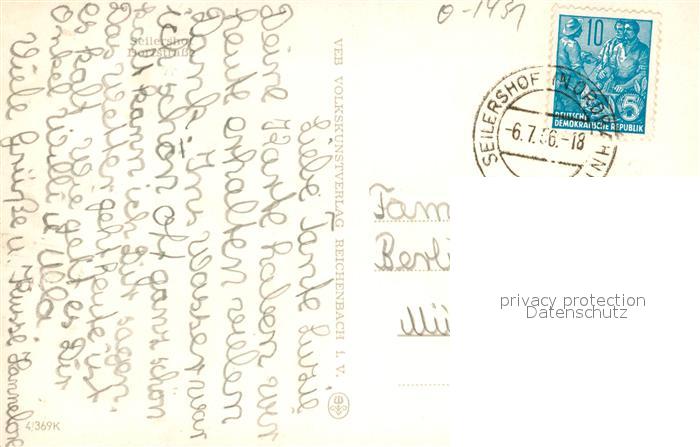 Seilershof
Dorfstraße
Liebe Tante Lusie
Deine Karte haben wir
heute erhalten vielen
Dank. Im Wasser war
ich schon oft ganz schön
kalt kann ich Dir sagen.
Das Wetter geht heute ist
es kalt. Wie geht es Dir
Onkel Willi u. Ulla.
Viele Grüße u. Küsse Hannelore
4/369K
VEB VOLKSKUNSTVERLAG REICHENBACH I. V.
0-1431
10
5
DEUTSCHE
DEMOKRATISCHE REPUBLIK
SEILERSHOF (NORDBAHN)
-6.7.56.-18
Fam
Berli
Mü
privacy protection
Datenschutz